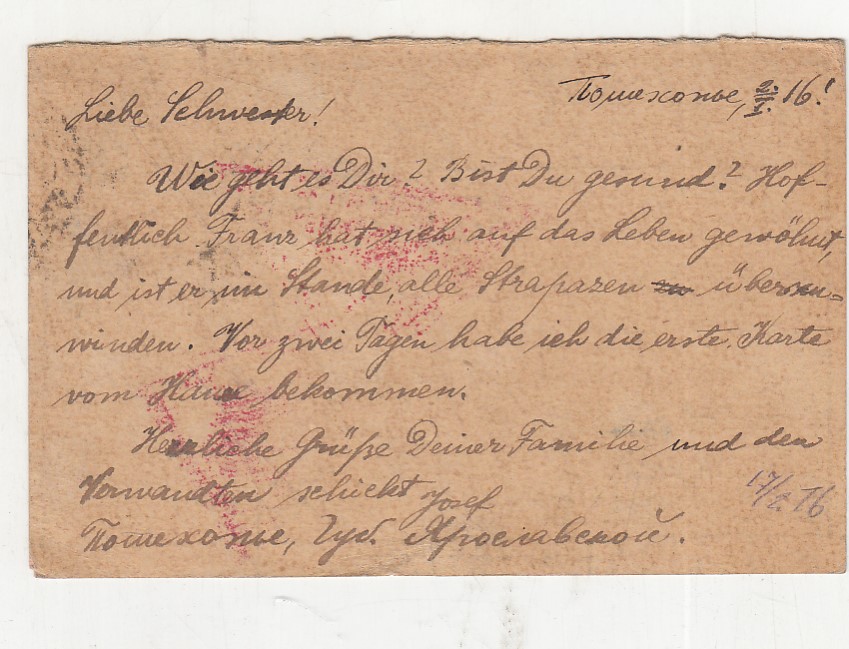 Пошехонье, 2./I. 16!
Liebe Schwester!
Wie geht es Dir? Bist Du gesund? Hof-
fentlich Franz hat sich auf das Leben gewöhnt,
und ist er im Stande, alle Strapazen zu überzu-
winden. Vor zwei Tagen habe ich die erste Karte
vom Hause bekommen.
Herzliche Grüße Deiner Familie und den
Verwandten schickt Josef
17/2 16
Пошехонье, Губ. Ярославской.